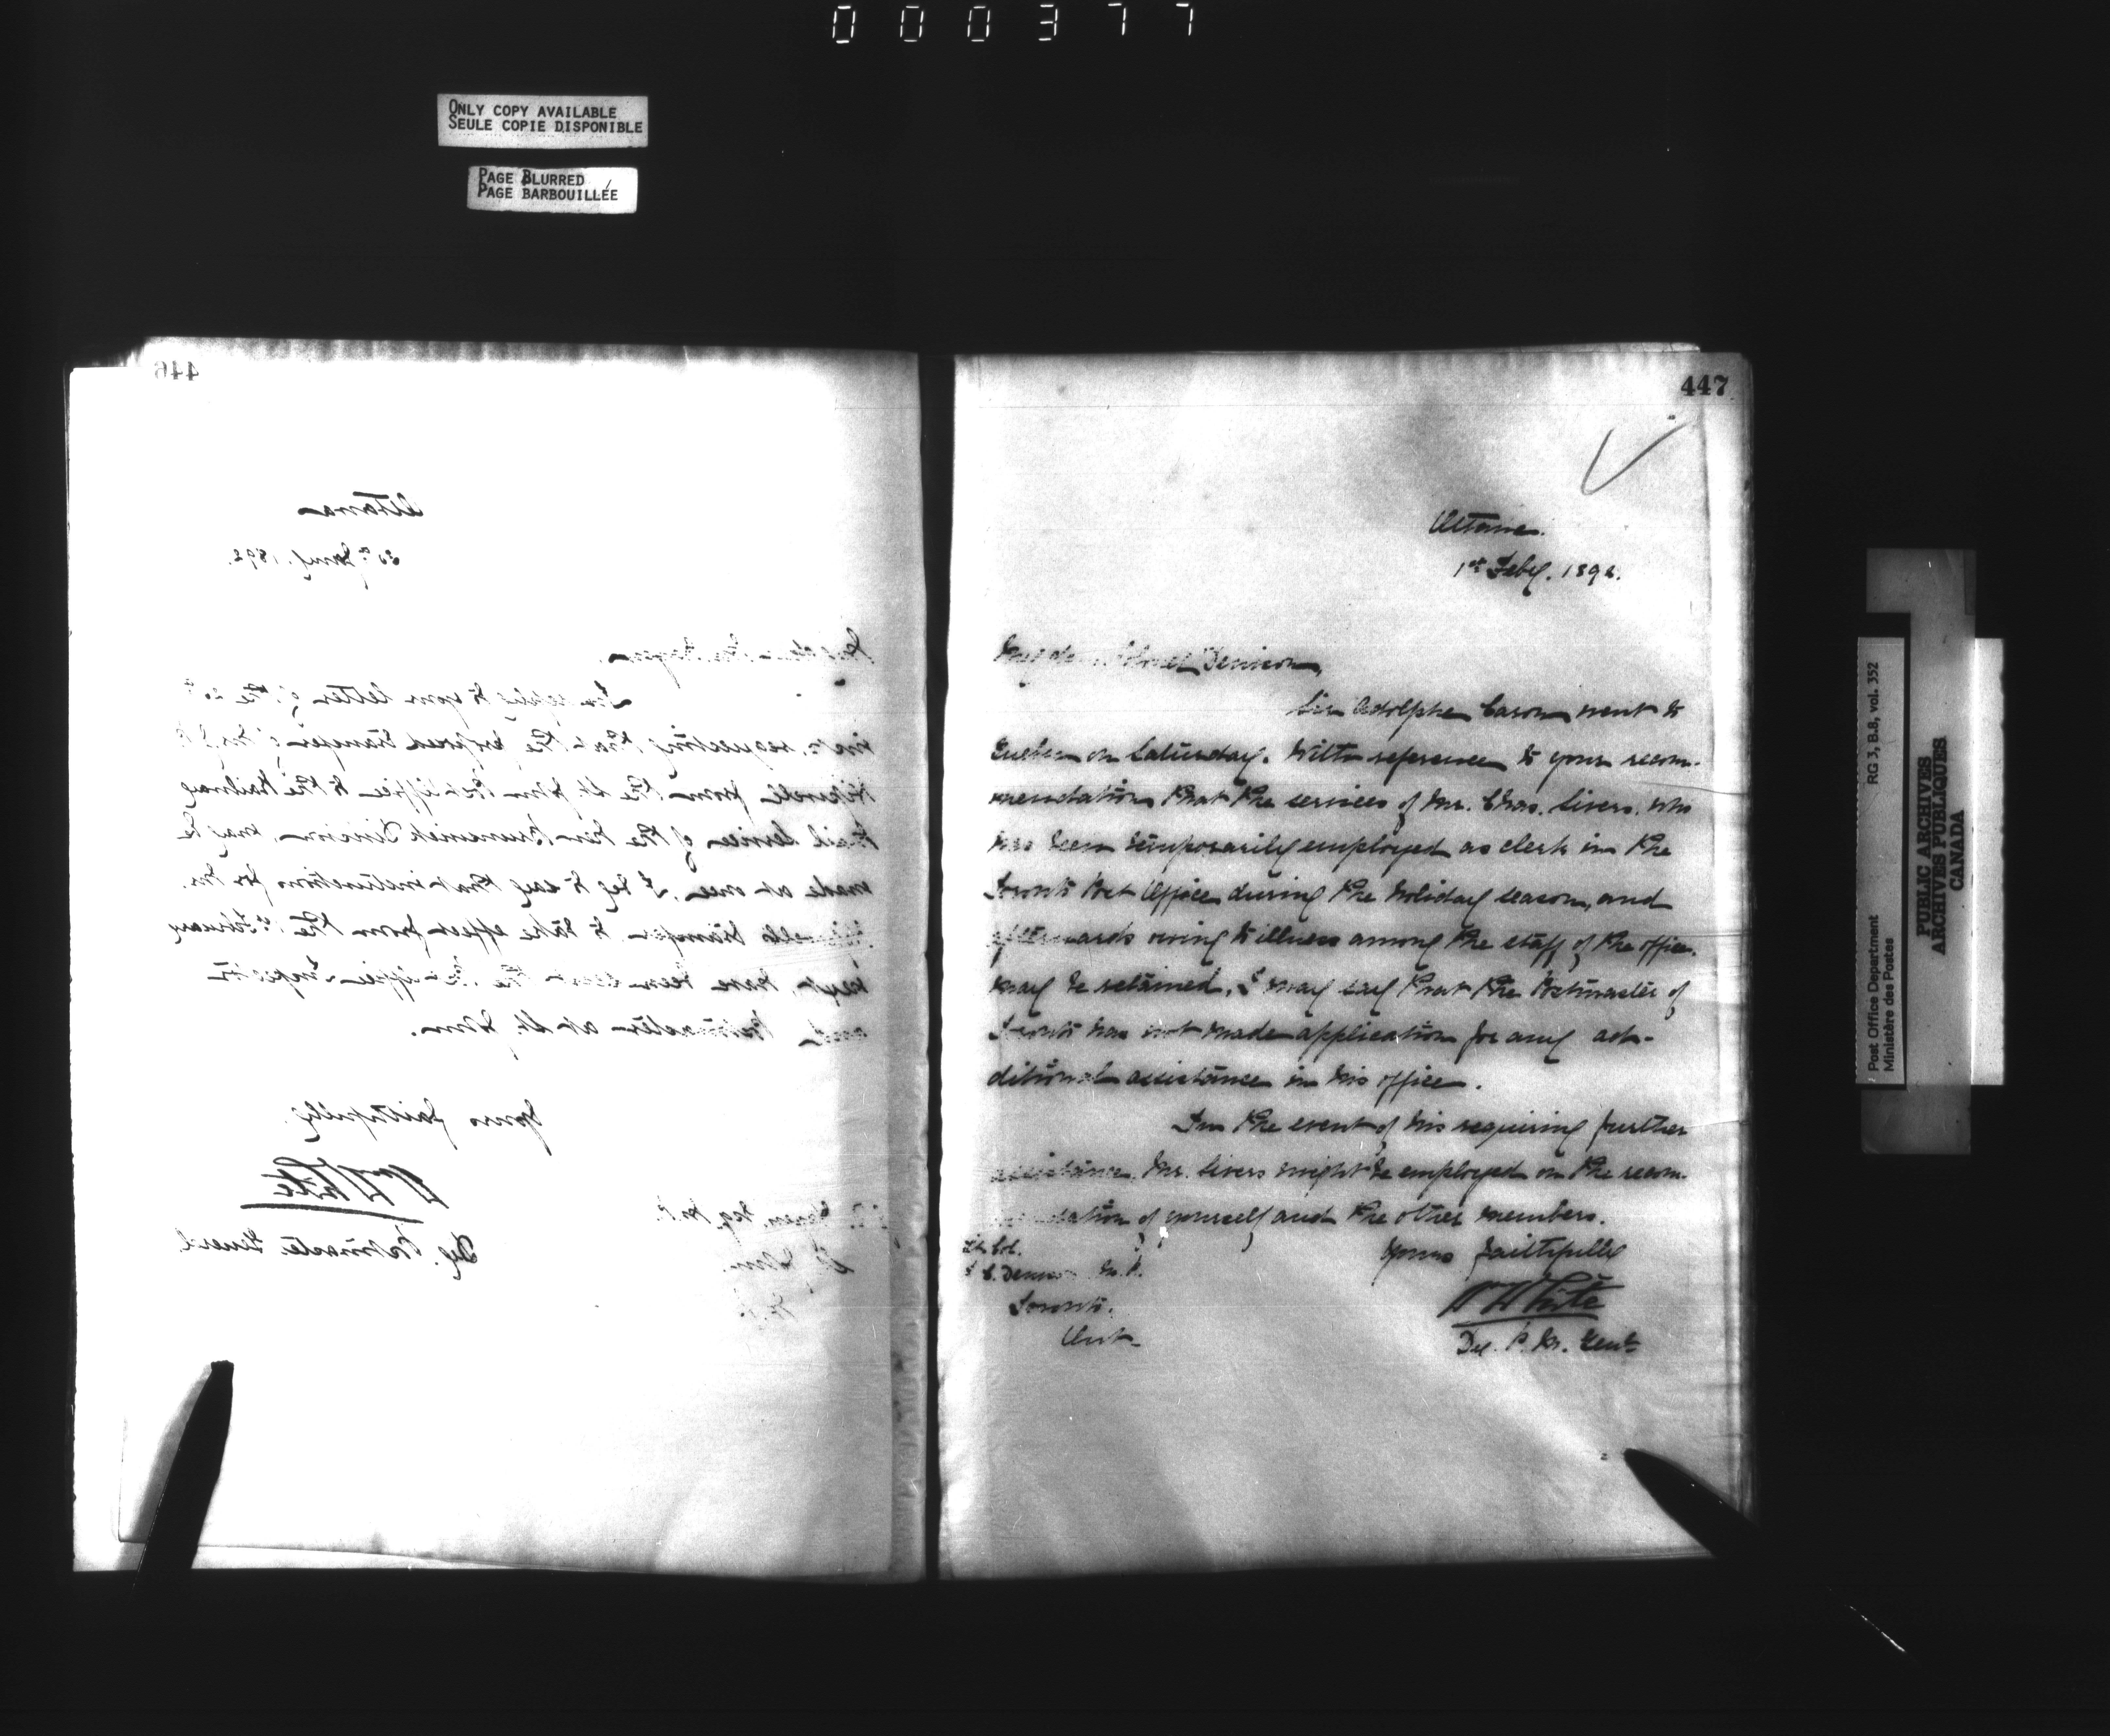 000377
ONLY COPY AVAILABLE
SEULE COPIE DISPONIBLE
PAGE BLURRED
PAGE BARBOUILLÉE
446
Ottawa
30th Jany. 1892.
In reply to your letter of the 20th
inst., requesting that the proposed transfer of Mr.
from the St. John Post Office to the Railway
Mail Service of the New Brunswick Division, may be
made at once, I beg to say that instructions for Mr.
transfer to take effect from the 1st February
next, have been sent the P. Office Inspector
and Postmaster at St. John.
Yours faithfully
Wm White
Dep. Postmaster General
Esq. M.P.
St. John.
N.B.
447
Ottawa.
1st Feby. 1892.
My dear Colonel Denison,
Sir Adolphe Caron went to
Quebec on Saturday. With reference to your recom-
mendation that the services of Mr. Chas. Sivers, who
has been temporarily employed as clerk in the
Toronto Post Office during the holiday season, and
afterwards owing to illness among the staff of the office.
may be retained, I may say that the Postmaster of
Toronto has not made application for any ad-
ditional assistance in his office.
In the event of his requiring further
assistance Mr. Sivers might be employed on the recom-
mendation of yourself and the other members.
Yours faithfully
Wm White
Dep. P. M. Genl.
Lt. Col.
Denison M.P.
Toronto.
Ont.
Post Office Department RG 3, B.8, vol. 352
Ministère des Postes
PUBLIC ARCHIVES
ARCHIVES PUBLIQUES
CANADA